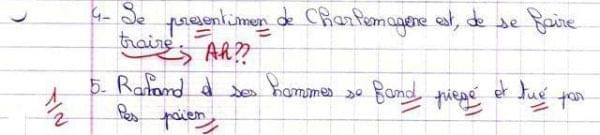 4- Le presentimen de Charlemagene est, de se faire
traire. AH??
5- Roland et ses hommes se fond piegé et tué par
les païen
1/2